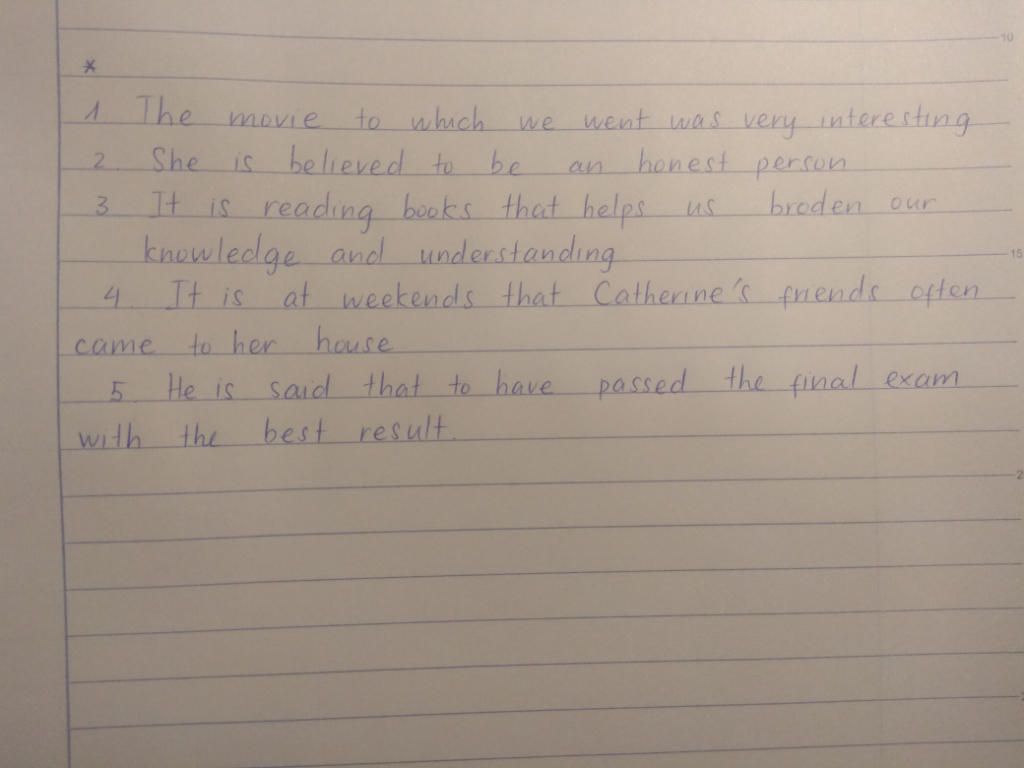 10
*
1 The movie to which we went was very interesting
2. She is believed to be an honest person
3 It is reading books that helps us broden our
15
knowledge and understanding
4. It is at weekends that Catherine's friends often
came to her house
5. He is said that to have passed the final exam
with the best result.
2